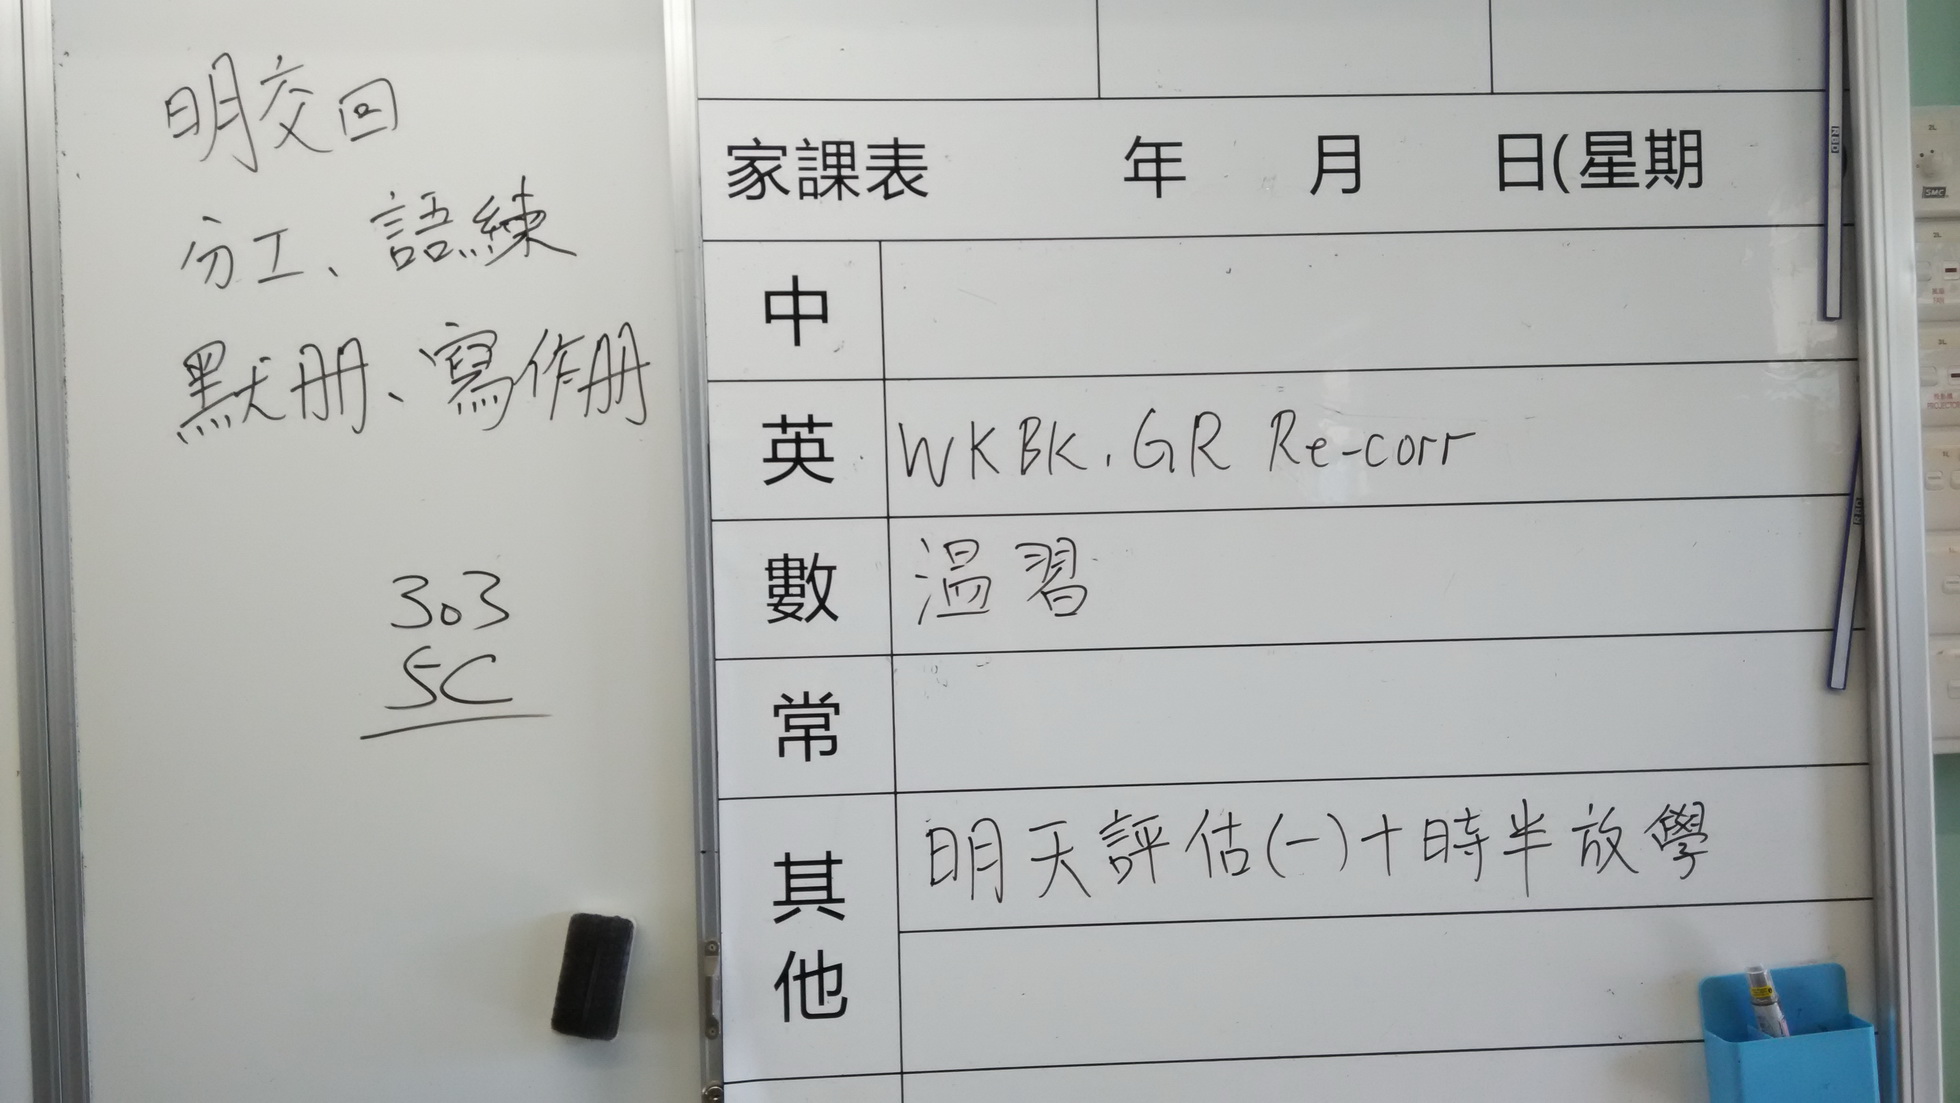 明交回
分工、語練
默册、寫作册
303
5C
家課表 年 月 日(星期
中
英 WKBK, GR Re-corr
數 温習
常
其他 明天評估(一)十時半放學